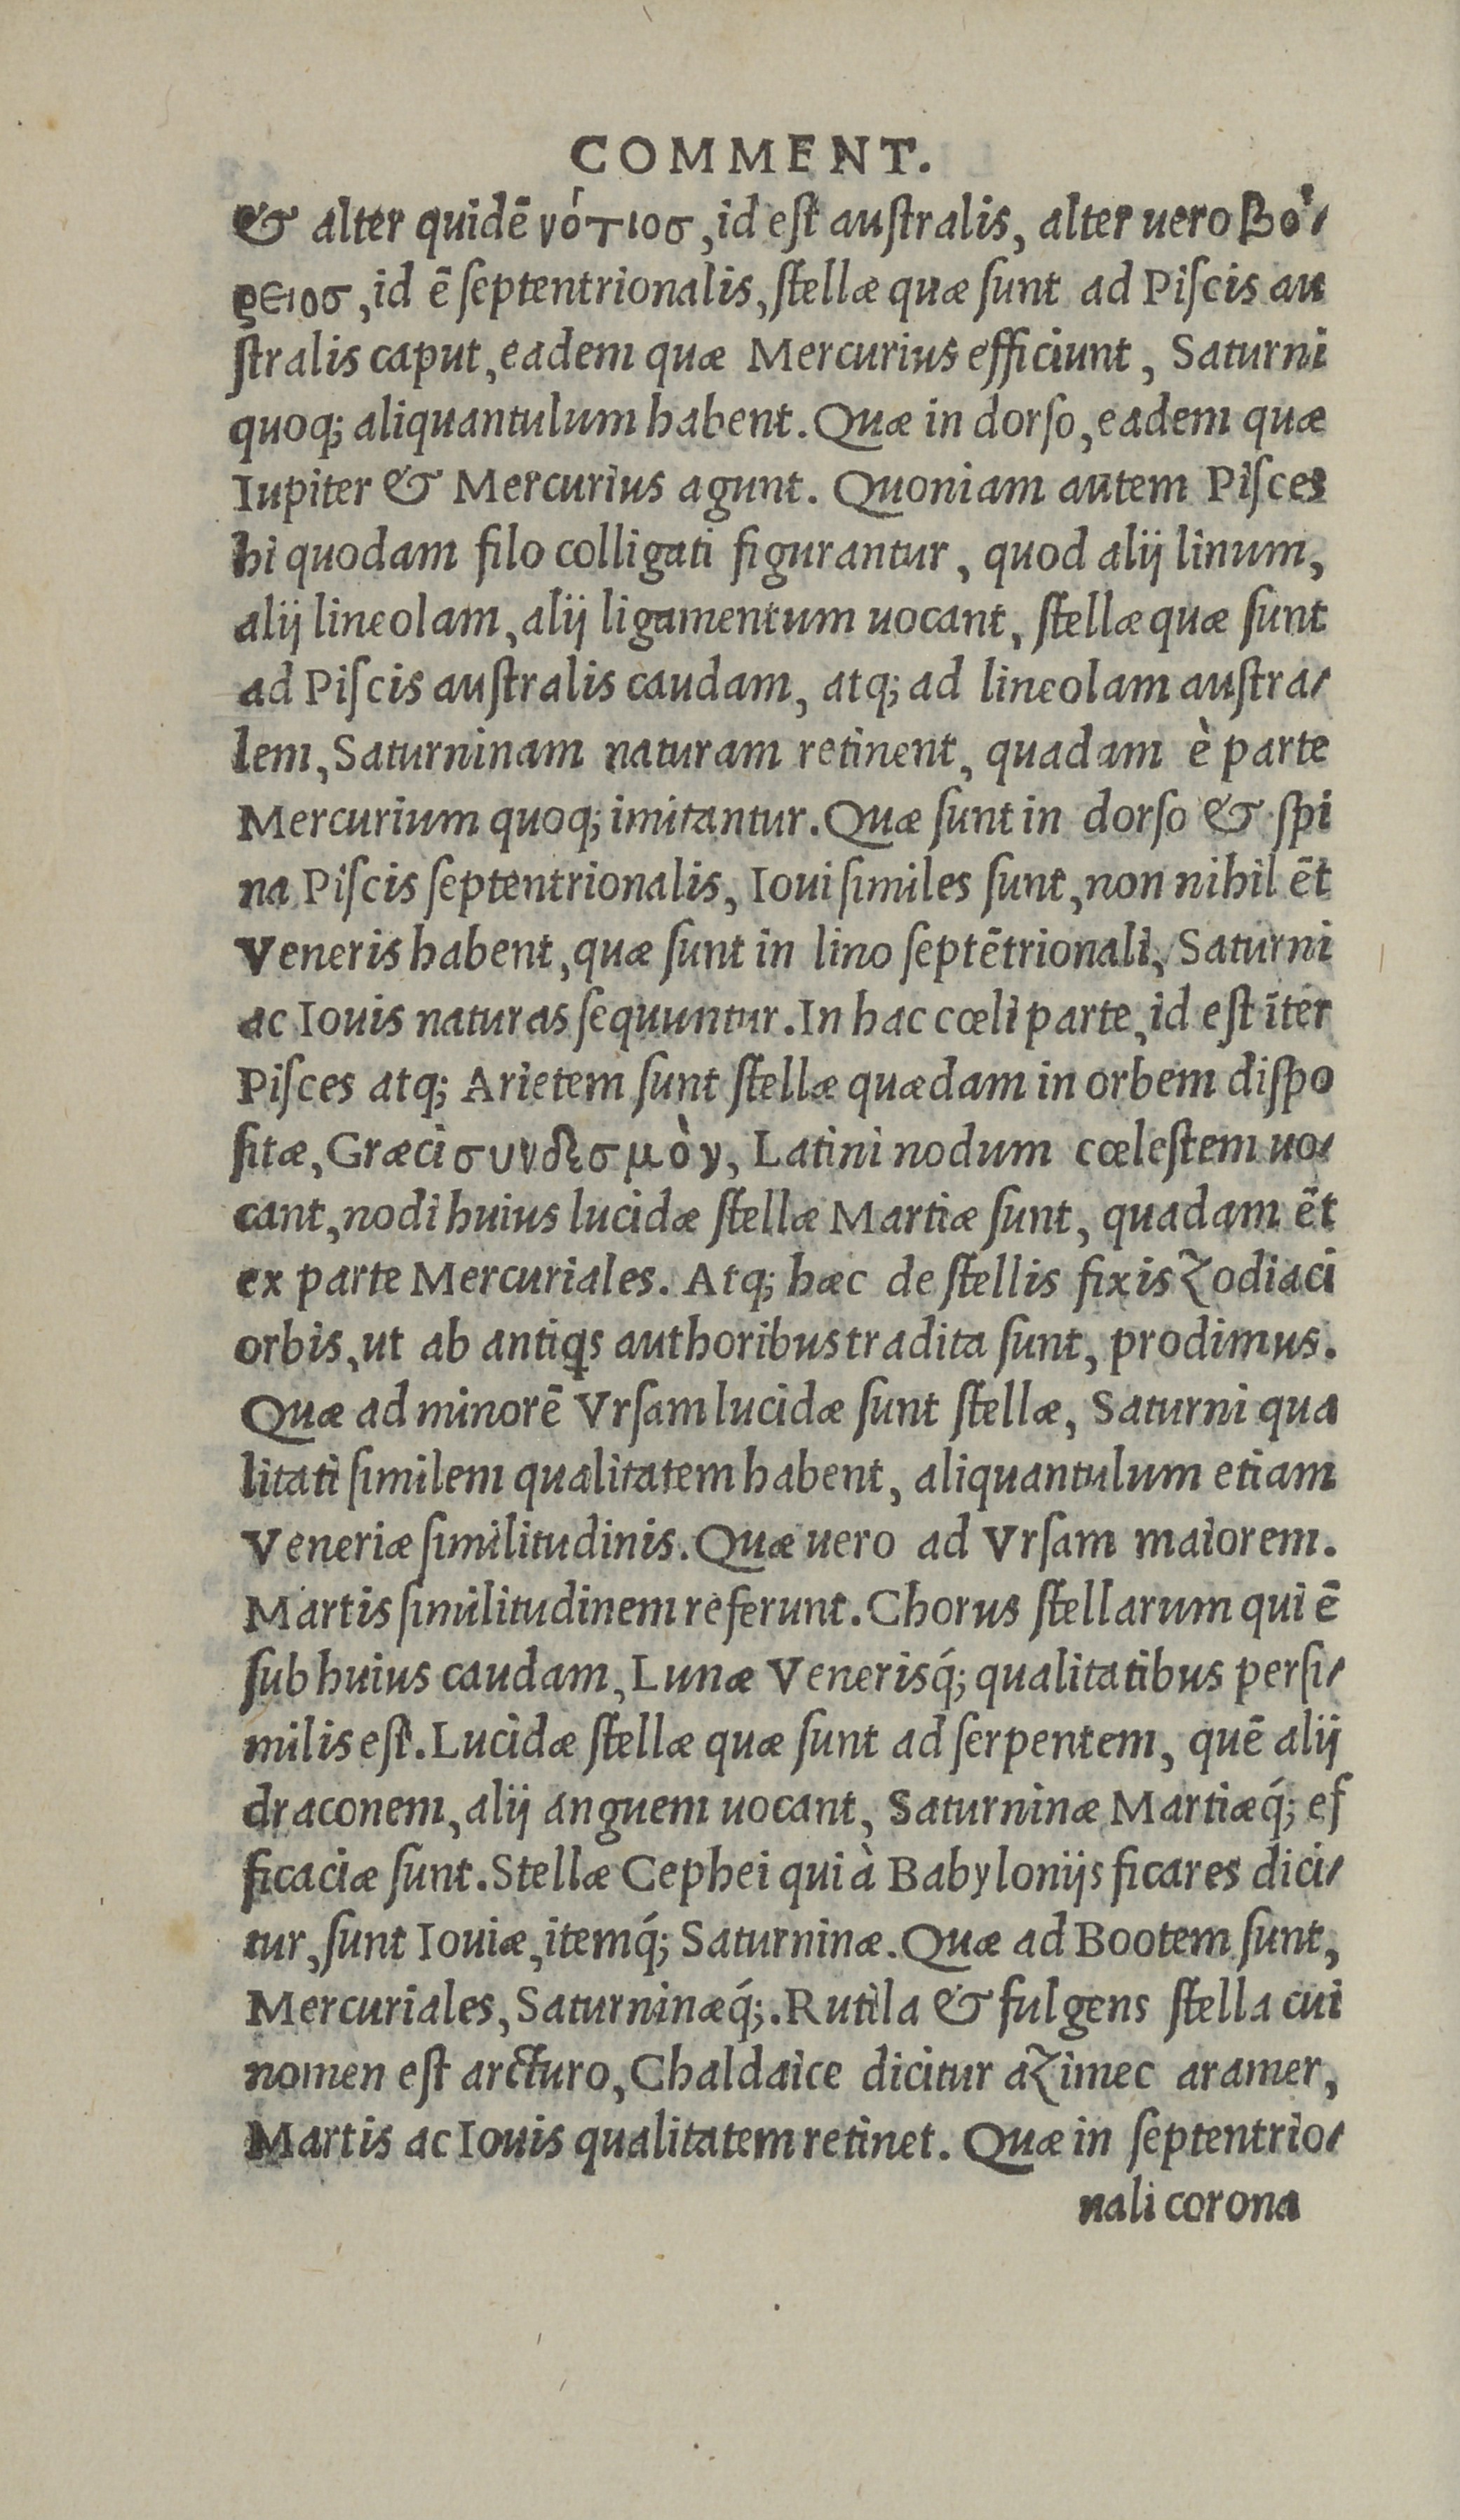 COMMENT.
& alter quidē νότιοσ, id eſt auſtralis, alter uero βό⸗
ρειοσ, id ē ſeptentrionalis, ſtellæ quæ ſunt ad Piſcis au
ſtralis caput, eadem quæ Mercurius efficiunt, Saturni
quoq; aliquantulum habent. Quæ in dorſo, eadem quæ
Iupiter & Mercurius agunt. Quoniam autem Piſces
hi quodam filo colligati figurantur, quod alij linum,
alij lineolam, alij ligamentum uocant, ſtellæ quæ ſunt
ad Piſcis auſtralis caudam, atq; ad lineolam auſtra⸗
lem, Saturninam naturam retinent, quadam è parte
Mercurium quoq; imitantur. Quæ ſunt in dorſo & ſpi
na Piſcis ſeptentrionalis, Ioui ſimiles ſunt, non nihil ēt
Veneris habent, quæ ſunt in lino ſeptētrionali, Saturni
ac Iouis naturas ſequuntur. In hac cœli parte, id eſt īter
Piſces atq; Arietem ſunt ſtellæ quædam in orbem diſpo
ſitæ, Græci συνδεσμὸν, Latini nodum cœleſtem uo⸗
cant, nodi huius lucidæ ſtellæ Martiæ ſunt, quadam ēt
ex parte Mercuriales. Atq; hæc de ſtellis fixis Zodiaci
orbis, ut ab antiꝗs authoribus tradita ſunt, prodimus.
Quæ ad minorē Vrſam lucidæ ſunt ſtellæ, Saturni qua
litati ſimilem qualitatem habent, aliquantulum etiam
Veneriæ ſimilitudinis. Quæ uero ad Vrſam maiorem.
Martis ſimilitudinem referunt. Chorus ſtellarum qui ē
ſub huius caudam, Lunæ Venerisq́; qualitatibus perſi⸗
milis eſt. Lucidæ ſtellæ quæ ſunt ad ſerpentem, quē alij
draconem, alij anguem uocant, Saturninæ Martiæq́; ef
ficaciæ ſunt. Stellæ Cephei qui à Babylonijs ficares dici⸗
tur, ſunt Iouiæ, itemq́; Saturninæ. Quæ ad Bootem ſunt,
Mercuriales, Saturninæq́;. Rutila & fulgens ſtella cui
nomen eſt arcturo, Chaldaice dicitur aZimec aramer,
Martis ac Iouis qualitatem retinet. Quæ in ſeptentrio⸗
nali corona